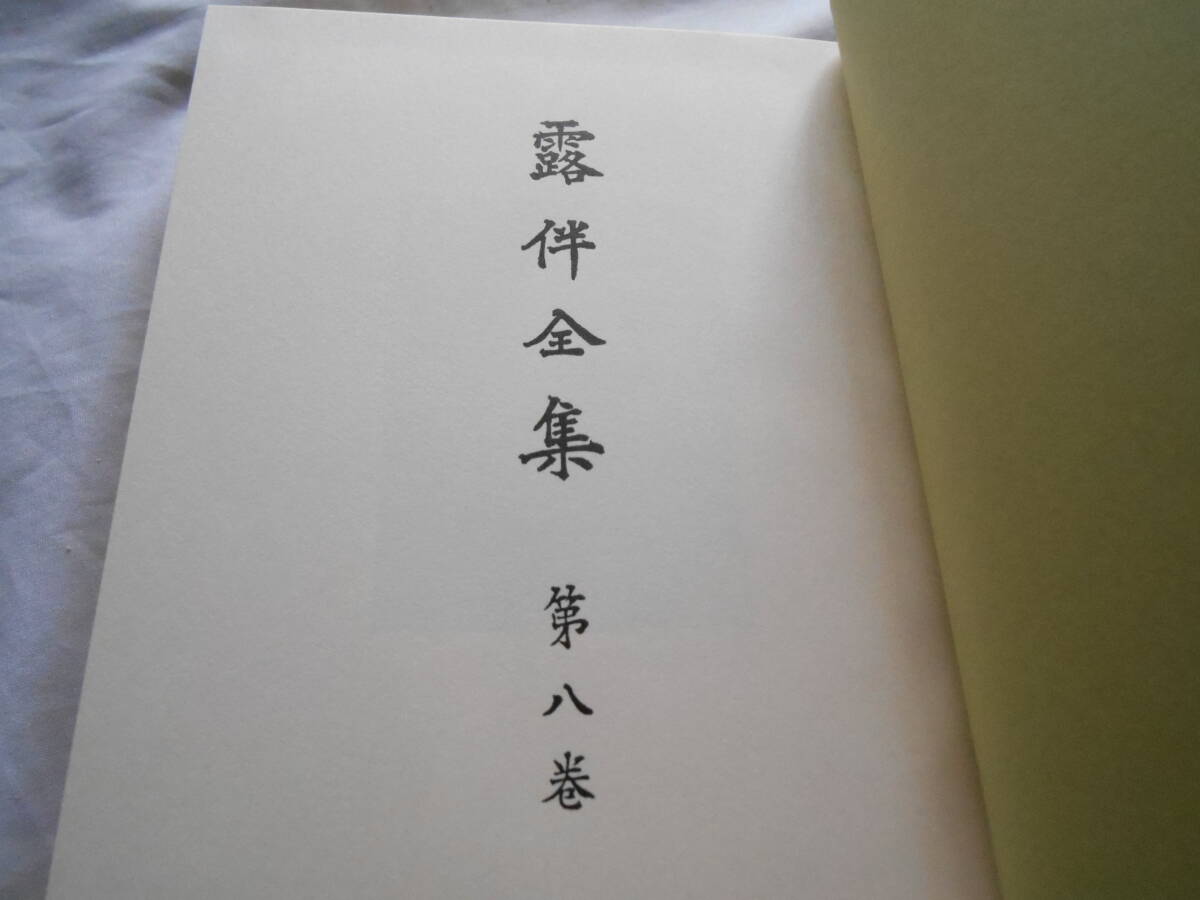 露伴全集 第八巻